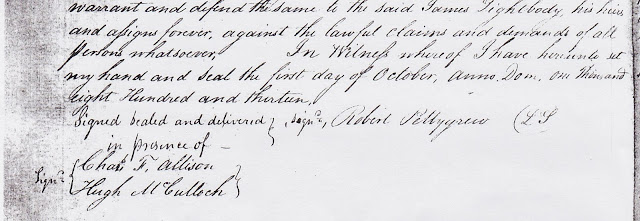 warrant and defend the same to the said James Lightbody, his heirs
and assigns forever, against the lawful claims and demands of all
persons whatsoever, In Witness whereof I have hereunto set
my hand and Seal the first day of October, Anno. Dom. one thousand
eight Hundred and thirteen,
Signed Sealed and delivered } signd, Robert Pettygrew (L S
in presence of –
Signd { Chas F. Allison
Hugh McCulloch }